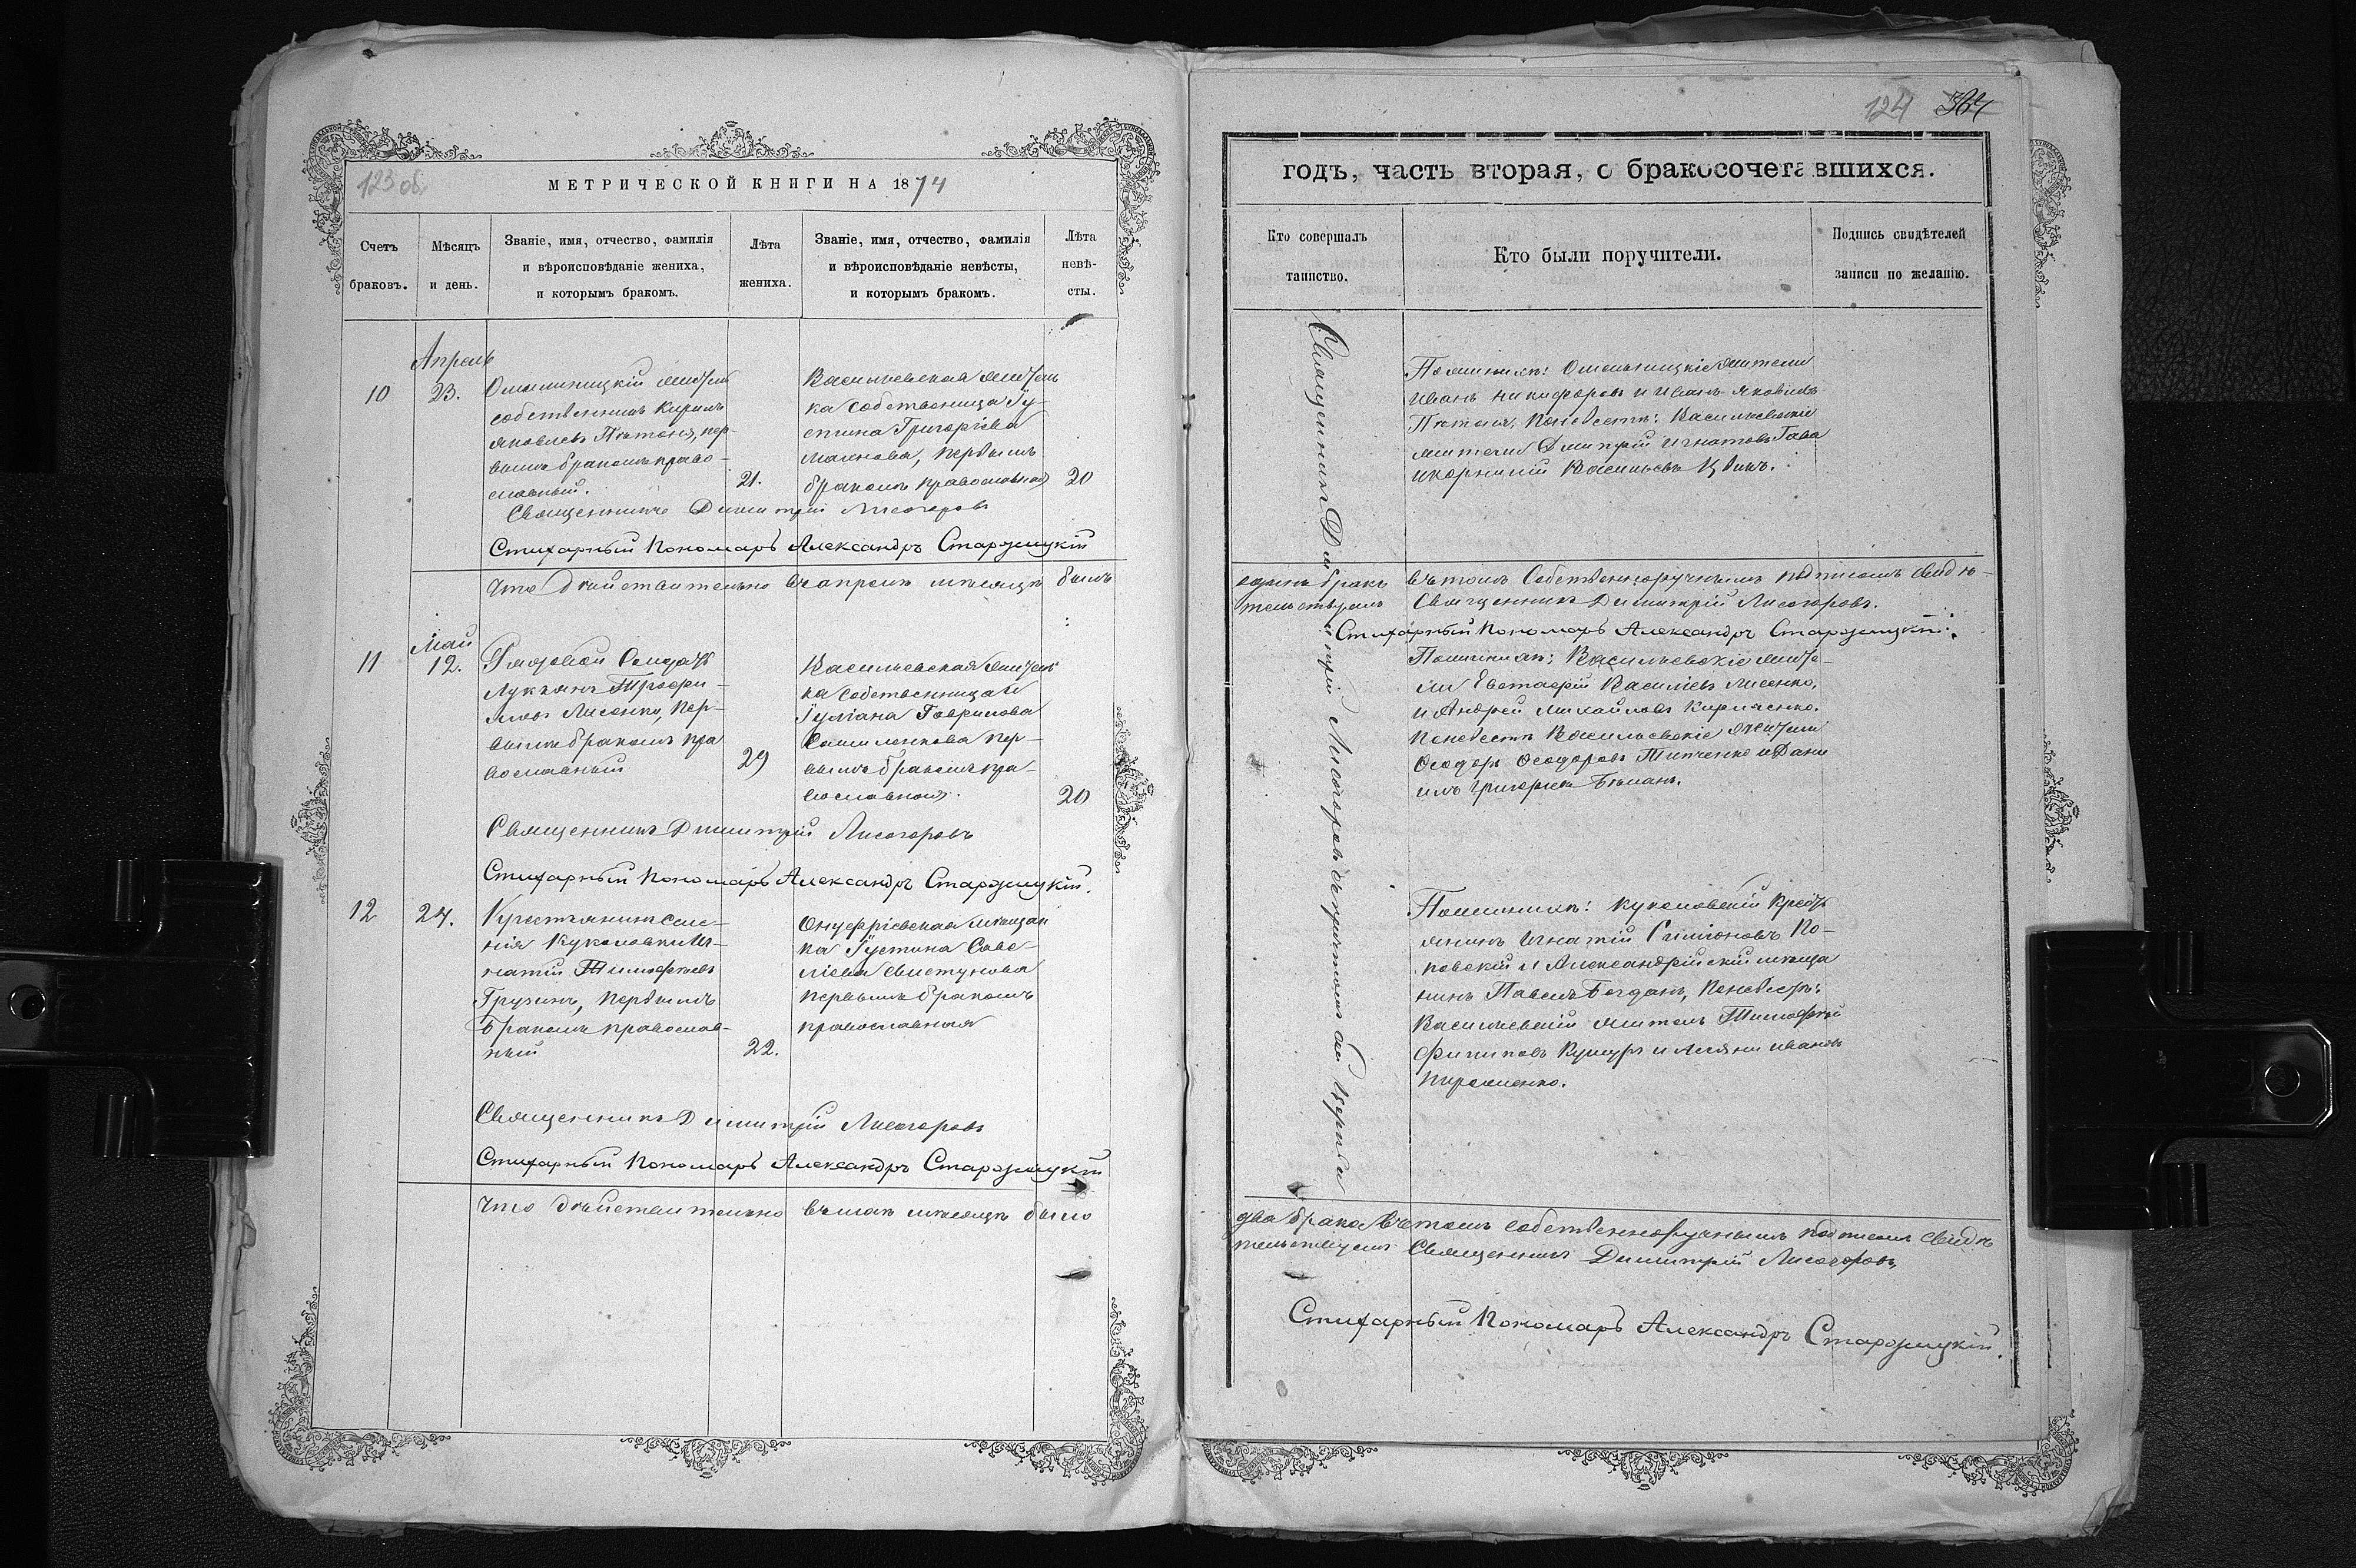 123 об.
МЕТРИЧЕСКОЙ КНИГИ НА 1874
Счетъ браковъ.
Мѣсяцъ и день.
Званіе, имя, отчество, фамилія
и вѣроисповѣданіе жениха,
и которымъ бракомъ.
Лѣта жениха.
Званіе, имя, отчество, фамилія
и вѣроисповѣданіе невѣсты,
и которымъ бракомъ.
Лѣта невѣ-
сты.
Апрель
10
23.
собственникъ Кирилъ
Яковлевъ
вымъ бракомъ право-
славный.
21.
Васильевская житель
ка собственница Іу-
стина Григоріева
первымъ
бракомъ православная
20
Священникъ Димитрій Лисогоровъ
Стихарный Пономарь Александръ Старожицкій
Что действительно въ апреле месяце былъ
Май
11
12.
Рядовой Солдатъ
Лукъянъ Трофи-
мовъ Лисенко, пер-
вымъ бракомъ пра
вославный
29
Васильевская житель
ка собственница
Іуліана Гаврилова
пер-
вымъ бракомъ пра-
вославная.
20
Священникъ Димитрій Лисогоровъ
Стихарный Пономарь Александръ Старожицкій.
12
24.
Крестьянинъ селе-
нія Куколовки Иг-
натій Тимофѣевъ
Грузинъ, первымъ
бракомъ православ-
ный
22.
Онуфріевская мѣщан
ка Іустина Саве-
ліева Свистунова
первымъ бракомъ
православная
Священникъ Димитрій Лисогоровъ
Стихарный Пономарь Александръ Старожицкій
Что действительно въ мае месяце было
124 364
годъ, часть вторая, о бракосочетавшихся.
Кто совершалъ
таинство.
Кто были поручители.
Подпись свидѣтелей
записи по желанію.
Священникъ Димитрій Лисогоровъ
жители
Иванъ Никифоровъ и Иванъ Яковлевъ
Васильевскіе
жители Дмитрій Игнатовъ
и Корнилій Васильевъ
одинъ бракъ въ томъ собственноручнымъ подписомъ свидѣ-
тельствуемъ Священникъ Димитрій Лисогоровъ.
Стихарный Пономарь Александръ Старожицкій.
Васильевскіе жите-
ли Евстафій Василіевъ Лисенко,
и Андрей Михайловъ Кириченко.
По невесте Васильевскіе жители
Феодоръ Феодоровъ и Дани
илъ Григорьевъ
По женихе: Куколовскій Крестъ
янинъ Игнатій Симіоновъ По-
повскій и Александрійскій мѣща
нинъ Павелъ Богданъ, По невесте:
Васильевскій житель Тимофѣй
Филиповъ и Иванов
два брака въ томъ собственноручнымъ подписомъ свидѣ
тельствуемъ Священникъ Димитрій Лисогоровъ,
Стихарный Пономарь Александръ Старожицкій.